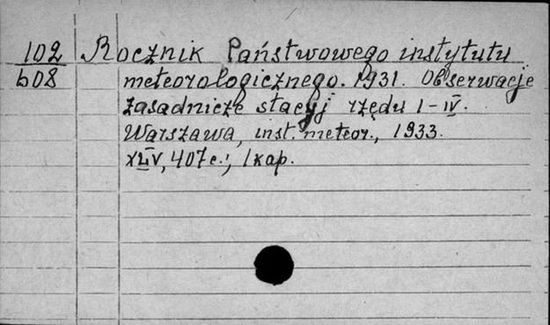 102 Rocznik Państwowego instytutu
608 meteorologicznego. 1931. Obserwacje
zasadnicze stacyj rzędu I-IV.
Warszawa, inst. meteor., 1933.
XLIV, 407 c.; 1 кар.